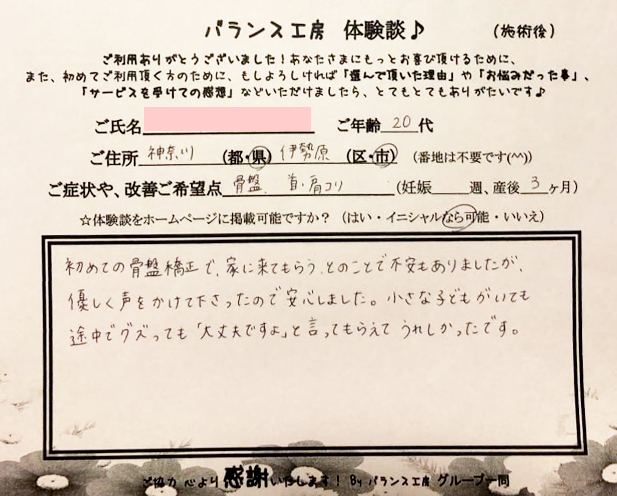 バランス工房 体験談♪ (施術後)
ご利用ありがとうございました！あなたさまにもっとお喜び頂けるために、
また、初めてご利用頂く方のために、もしよろしければ「選んで頂いた理由」や「お悩みだった事」、
「サービスを受けての感想」などいただけましたら、とてもとてもありがたいです♪
ご氏名 ご年齢 20 代
ご住所 神奈川 (都・県) 伊勢原 (区・市) (番地は不要です(^^))
ご症状や、改善ご希望点 骨盤 首・肩コリ (妊娠 週、産後 3 ヶ月)
☆体験談をホームページに掲載可能ですか？ (はい・イニシャルなら可能・いいえ)
初めての骨盤矯正で、家に来てもらう、とのことで不安もありましたが、
優しく声をかけて下さったので安心しました。小さな子どもがいても
途中でグズっても「大丈夫ですよ」と言ってもらえてうれしかったです。
ご協力 心より感謝いたします！ By バランス工房 グループ一同